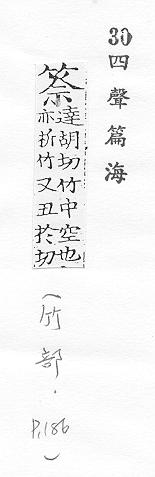 30 四聲篇海
筡
達胡切竹中空也
亦折竹又丑於切
(竹部．P.186)